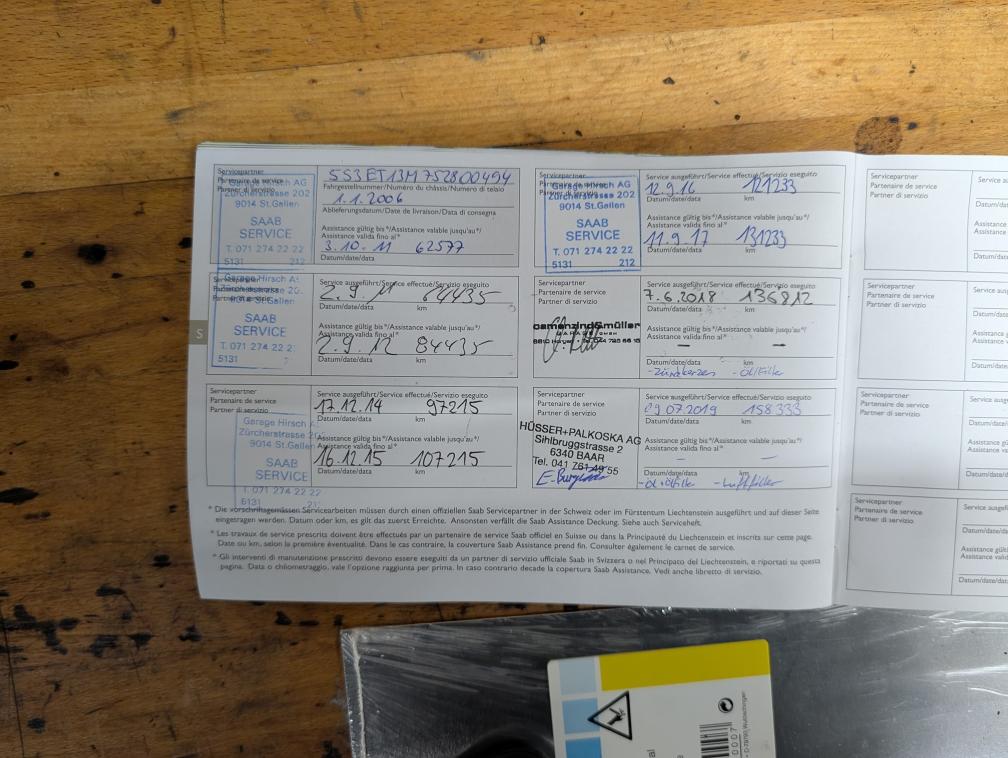 Servicepartner
Partenaire de service
Partner di servizio
Garage Hirsch AG
Zürcherstrasse 202
9014 St.Gallen
SAAB
SERVICE
T. 071 274 22 22
5131 212
5S3ET13M752800494
Fahrgestellnummer/Numéro du châssis/Numero di telaio
1.1.2006
Ablieferungsdatum/Date de livraison/Data di consegna
Assistance gültig bis*/Assistance valable jusqu'au*/
Assistance valida fino al*
3.10.11 62577
Datum/date/data km
Servicepartner
Garage Hirsch
Zürcherstrasse 20
9014 St.Gallen
SAAB
SERVICE
T. 071 274 22 2
5131
Service ausgeführt/Service effectué/Servizio eseguito
2.9.11 84435
Datum/date/data km
Assistance gültig bis*/Assistance valable jusqu'au*/
Assistance valida fino al*
2.9.12 84435
Datum/date/data km
Servicepartner
Partenaire de service
Partner di servizio
Garage Hirsch
Zürcherstrasse
9014 St.Gallen
SAAB
SERVICE
T. 071 274 22 22
5131
Service ausgeführt/Service effectué/Servizio eseguito
17.12.14 97215
Datum/date/data km
Assistance gültig bis*/Assistance valable jusqu'au*/
Assistance valida fino al*
16.12.15 107215
Datum/date/data km
Servicepartner
Partenaire de service
Partner di servizio
Garage Hirsch AG
Zürcherstrasse 202
9014 St.Gallen
SAAB
SERVICE
T. 071 274 22 22
5131 212
Service ausgeführt/Service effectué/Servizio eseguito
12.9.16 121233
Datum/date/data km
Assistance gültig bis*/Assistance valable jusqu'au*/
Assistance valida fino al*
11.9.17 131233
Datum/date/data km
Servicepartner
Partenaire de service
Partner di servizio
camenzind&müller
Service ausgeführt/Service effectué/Servizio eseguito
7.6.2018 136812
Datum/date/data km
Assistance gültig bis*/Assistance valable jusqu'au*/
Assistance valida fino al*
- -
Datum/date/data km
-Zündkerzen -Öl/Filter
Servicepartner
Partenaire de service
Partner di servizio
HÜSSER+PALKOSKA AG
Sihlbruggstrasse 2
6340 BAAR
Tel. 041 761 49 55
Service ausgeführt/Service effectué/Servizio eseguito
09.07.2019 158333
Datum/date/data km
Assistance gültig bis*/Assistance valable jusqu'au*/
Assistance valida fino al*
- -
Datum/date/data km
-Öl+Ölfilter -Luftfilter
* Die vorschriftsgemässen Servicearbeiten müssen durch einen offiziellen Saab Servicepartner in der Schweiz oder im Fürstentum Liechtenstein ausgeführt und auf dieser Seite
eingetragen werden. Datum oder km, es gilt das zuerst Erreichte. Ansonsten verfällt die Saab Assistance Deckung. Siehe auch Serviceheft.
* Les travaux de service prescrits doivent être effectués par un partenaire de service Saab officiel en Suisse ou dans la Principauté du Liechtenstein et inscrits sur cette page.
Date ou km, selon la première éventualité. Dans le cas contraire, la couverture Saab Assistance prend fin. Consulter également le carnet de service.
* Gli interventi di manutenzione prescritti devono essere eseguiti da un partner di servizio ufficiale Saab in Svizzera o nel Principato del Liechtenstein, e riportati su questa
pagina. Data o chilometraggio, vale l'opzione raggiunta per prima. In caso contrario decade la copertura Saab Assistance. Vedi anche libretto di servizio.
S
Servicepartner
Partenaire de service
Partner di servizio
Service a
Datum/dat
Assistance
Assistance
Datum/date
Servicepartner
Partenaire de service
Partner di servizio
Service aus
Datum/date
Assistance
Assistance
Datum/date
Servicepartner
Partenaire de service
Partner di servizio
Service ausg
Datum/date/
Assistance g
Assistance v
Datum/date/
Servicepartner
Partenaire de service
Partner di servizio
Service ausgef
Datum/date/d
Assistance gül
Assistance vali
Datum/date/da